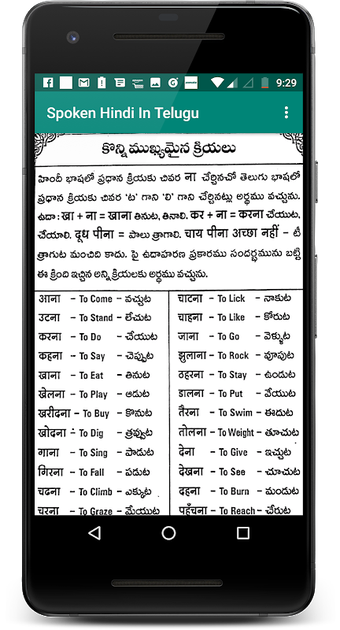 9:29
Spoken Hindi In Telugu
కొన్ని ముఖ్యమైన క్రియలు
హిందీ భాషలో ప్రధాన క్రియకు చివర ना చేర్చినచో తెలుగు భాషలో
ప్రధాన క్రియకు చివర 'ట' గాని 'లి' గాని చేర్చినట్లు అర్థము వచ్చును.
ఉదా : खा + ना = खाना తినుట, తినాలి. कर + ना = करना చేయుట,
చేయాలి. दूध पीना = పాలు త్రాగాలి. चाय पीना अच्छा नहीं – టీ
త్రాగుట మంచిది కాదు. పై ఉదాహరణ ప్రకారము సందర్భమును బట్టి
ఈ క్రింది ఇచ్చిన అన్ని క్రియలకు అర్థము వచ్చును.
आना – To Come – వచ్చుట
उटना – To Stand – లేచుట
करना – To Do – చేయుట
कहना – To Say – చెప్పుట
खाना – To Eat – తినుట
खेलना – To Play – ఆడుట
खरीदना – To Buy – కొనుట
खोदना – To Dig – త్రవ్వుట
गाना – To Sing – పాడుట
गिरना – To Fall – పడుట
चढना – To Climb – ఎక్కుట
चरना – To Graze – మేయుట
चाटना – To Lick – నాకుట
चाहना – To Like – కోరుట
जाना – To Go – వెళ్ళుట
झुलाना – To Rock – వూపుట
ठहरना – To Stay – ఉండుట
डालना – To Put – వేయుట
तैरना – To Swim – ఈదుట
तोलना – To Weight – తూచుట
देना – To Give – ఇచ్చుట
देखना – To See – చూచుట
दहना – To Burn – మండుట
पहुँचना – To Reach – చేరుట